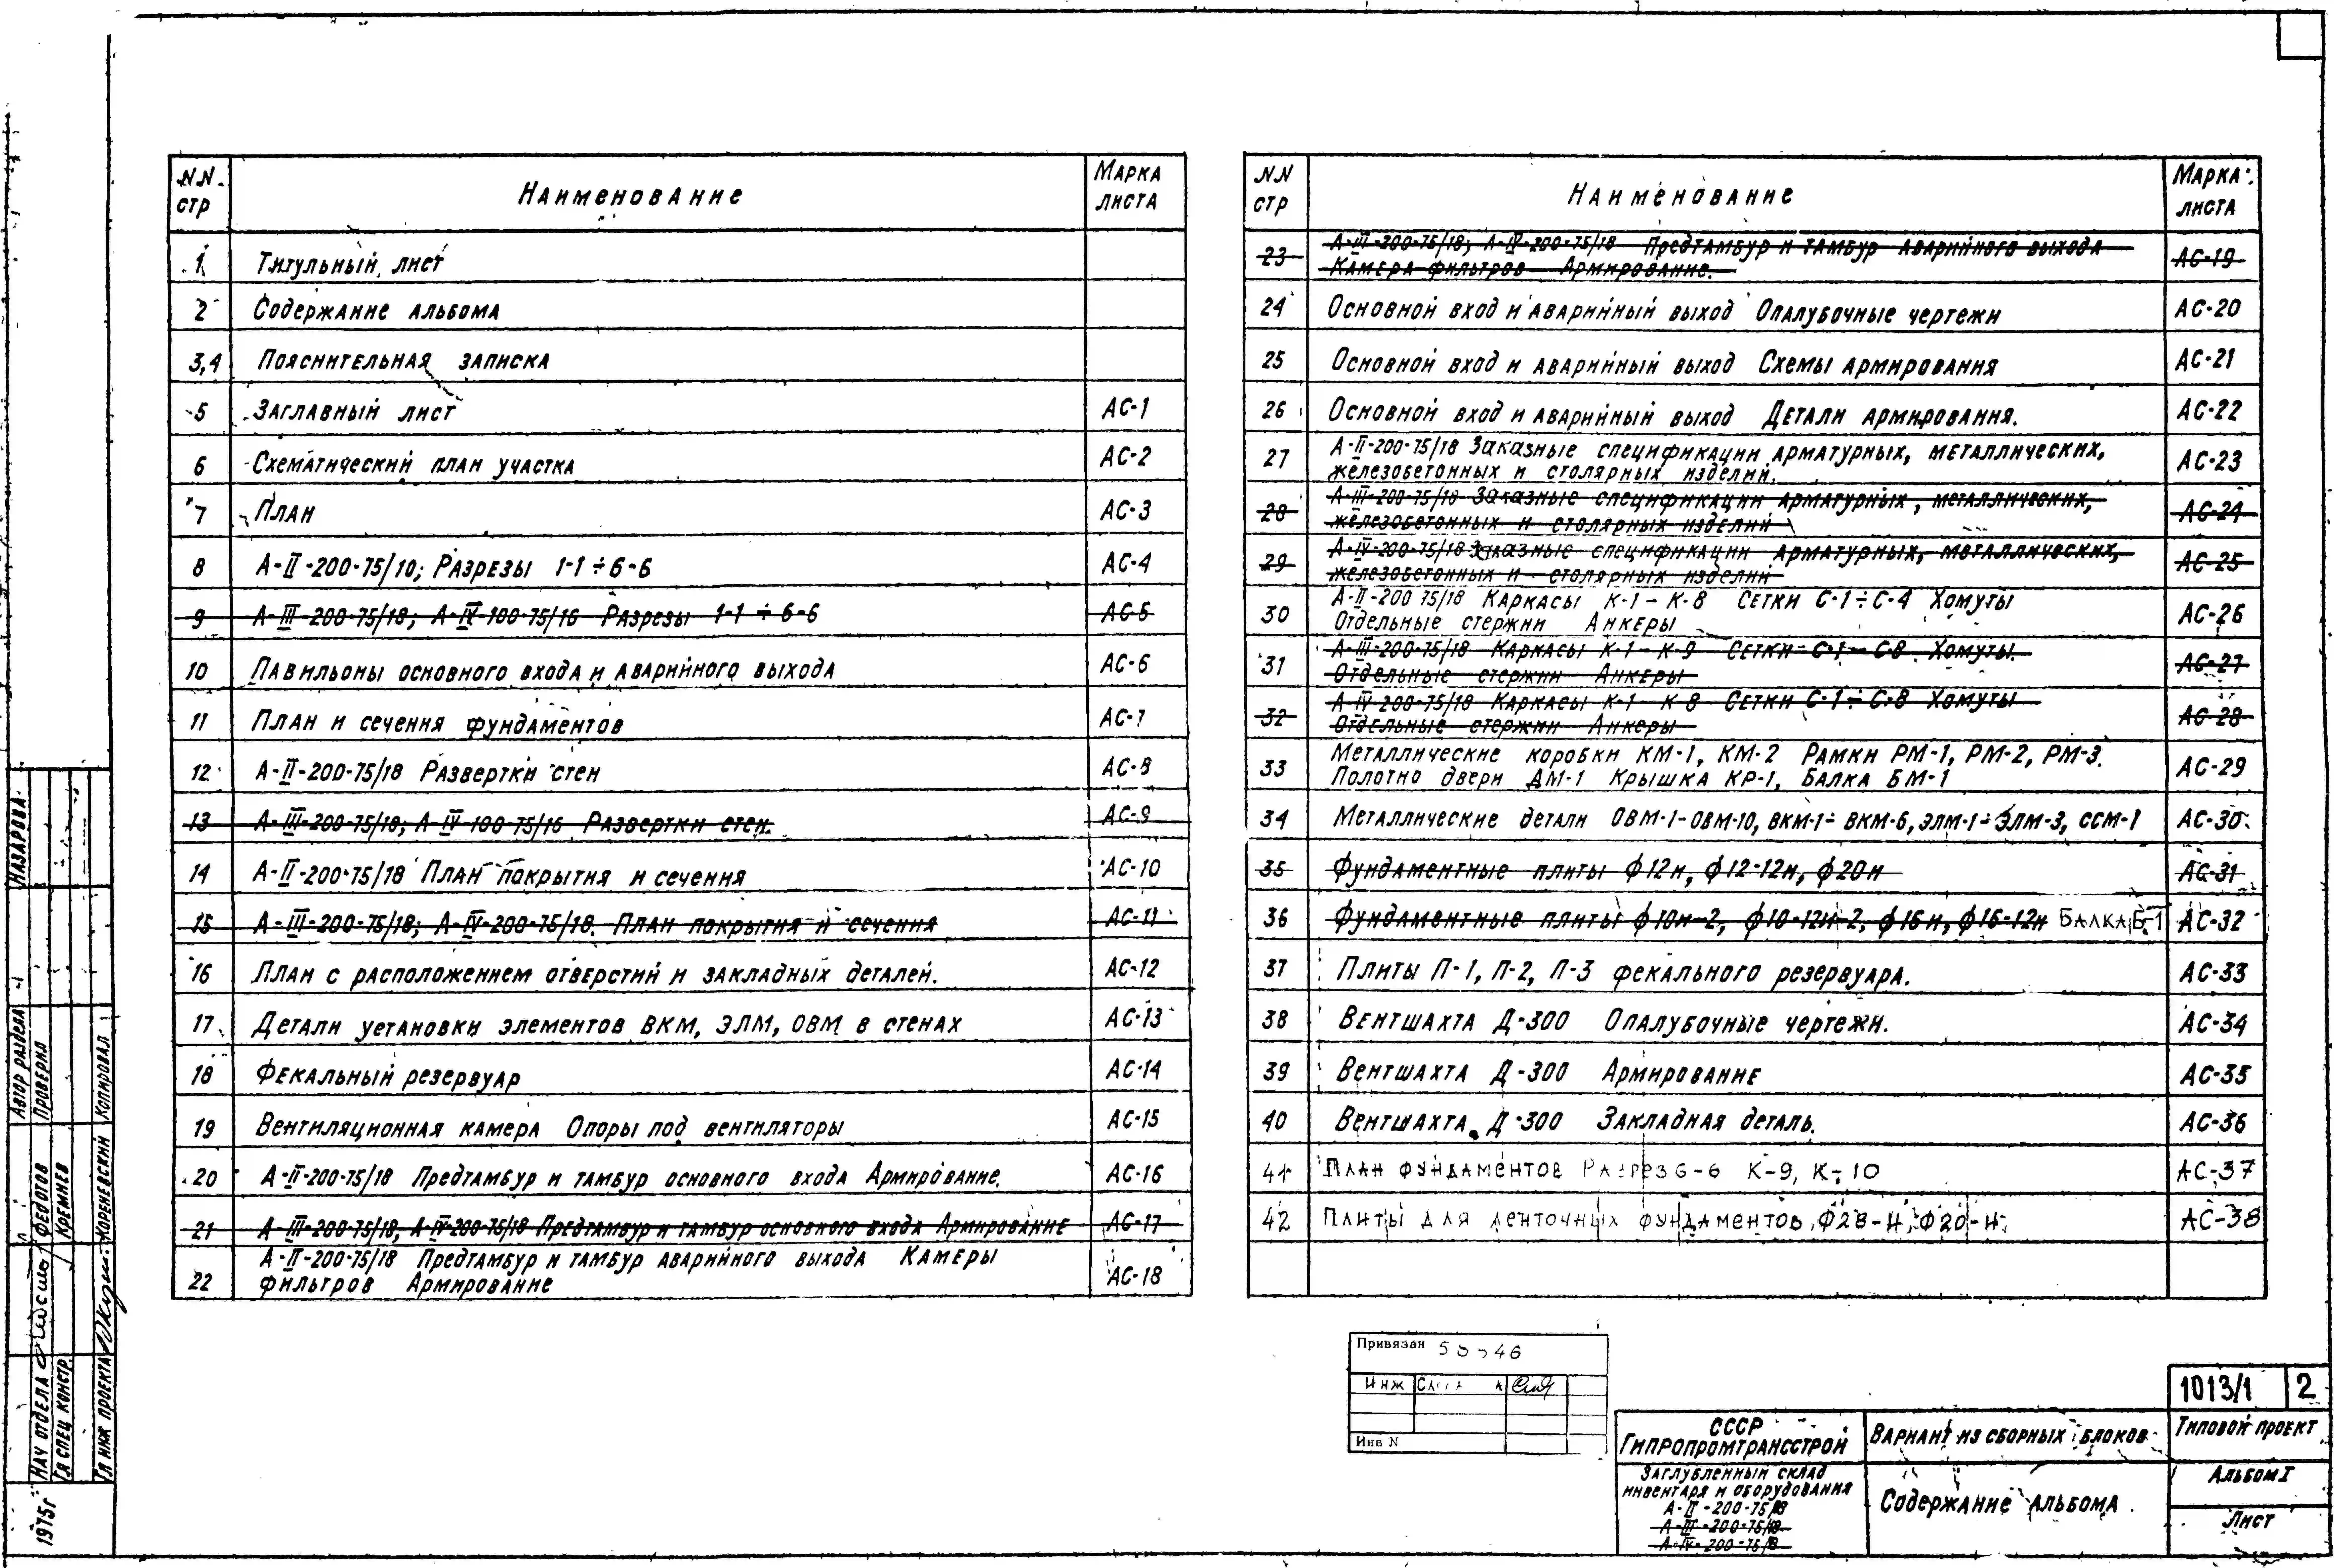 NN стр Наименование Марка листа
1 Титульный лист
2 Содержание альбома
3,4 Пояснительная записка
5 Заглавный лист АС-1
6 Схематический план участка АС-2
7 План АС-3
8 А-II-200-75/10; Разрезы 1-1÷6-6 АС-4
9 А-III-200-75/18; А-IV-100-75/16 Разрезы 1-1÷6-6 АС-5
10 Павильоны основного входа и аварийного выхода АС-6
11 План и сечения фундаментов АС-7
12 А-II-200-75/18 Развертки стен АС-8
13 А-III-200-75/18; А-IV-100-75/16 Развертки стен. АС-9
14 А-II-200-75/18 План покрытия и сечения АС-10
15 А-III-200-75/18; А-IV-200-75/18. План покрытия и сечения АС-11
16 План с расположением отверстий и закладных деталей. АС-12
17 Детали установки элементов ВКМ, ЭЛМ, ОВМ в стенах АС-13
18 Фекальный резервуар АС-14
19 Вентиляционная камера Опоры под вентиляторы АС-15
20 А-II-200-75/18 Предтамбур и тамбур основного входа Армирование. АС-16
21 А-III-200-75/18, А-IV-200-75/18 Предтамбур и тамбур основного входа Армирование АС-17
22 А-II-200-75/18 Предтамбур и тамбур аварийного выхода Камеры
фильтров Армирование АС-18
NN стр Наименование Марка листа
23 А-III-200-75/18; А-IV-200-75/18 Предтамбур и тамбур аварийного выхода
Камера фильтров Армирование. АС-19
24 Основной вход и аварийный выход Опалубочные чертежи АС-20
25 Основной вход и аварийный выход Схемы армирования АС-21
26 Основной вход и аварийный выход Детали армирования. АС-22
27 А-II-200-75/18 Заказные спецификации арматурных, металлических,
железобетонных и столярных изделий. АС-23
28 А-III-200-75/18 Заказные спецификации арматурных, металлических,
железобетонных и столярных изделий АС-24
29 А-IV-200-75/18 Заказные спецификации арматурных, металлических,
железобетонных и столярных изделий АС-25
30 А-II-200 75/18 Каркасы К-1-К-8 Сетки С-1÷С-4 Хомуты
Отдельные стержни Анкеры АС-26
31 А-III-200-75/18 Каркасы К-1-К-9 Сетки С-1-С-8 Хомуты.
Отдельные стержни Анкеры АС-27
32 А-IV-200-75/18 Каркасы К-1-К-8 Сетки С-1÷С-8 Хомуты
Отдельные стержни Анкеры АС-28
33 Металлические коробки КМ-1, КМ-2 Рамки РМ-1, РМ-2, РМ-3.
Полотно двери ДМ-1 Крышка КР-1, Балка БМ-1 АС-29
34 Металлические детали ОВМ-1-ОВМ-10, ВКМ-1÷ВКМ-6, ЭЛМ-1÷ЭЛМ-3, ССМ-1 АС-30
35 Фундаментные плиты ф12н, ф12-12н, ф20н АС-31
36 Фундаментные плиты ф10н-2, ф10-12н-2, ф16н, ф16-12н Балка Б-1 АС-32
37 Плиты П-1, П-2, П-3 фекального резервуара. АС-33
38 Вентшахта Д-300 Опалубочные чертежи. АС-34
39 Вентшахта Д-300 Армирование АС-35
40 Вентшахта Д-300 Закладная деталь. АС-36
41 План фундаментов Разрез 6-6 К-9, К-10 АС-37
42 Плиты для ленточных фундаментов Ф28-Н, Ф20-Н АС-38
Привязан
Инж
Инв N
1013/1 2
СССР
Гипропромтрансстрой
Вариант из сборных блоков
Типовой проект
Заглубленный склад
инвентаря и оборудования
А-II-200-75/18
А-III-200-75/18
А-IV-200-75/18
Содержание альбома.
Альбом I
Лист
Назарова
Автор раздела
Проверил
Копировал
Федотов
Кремнев
Кореневский
Нач отдела
Гл спец констр.
Гл инж проекта
1975г